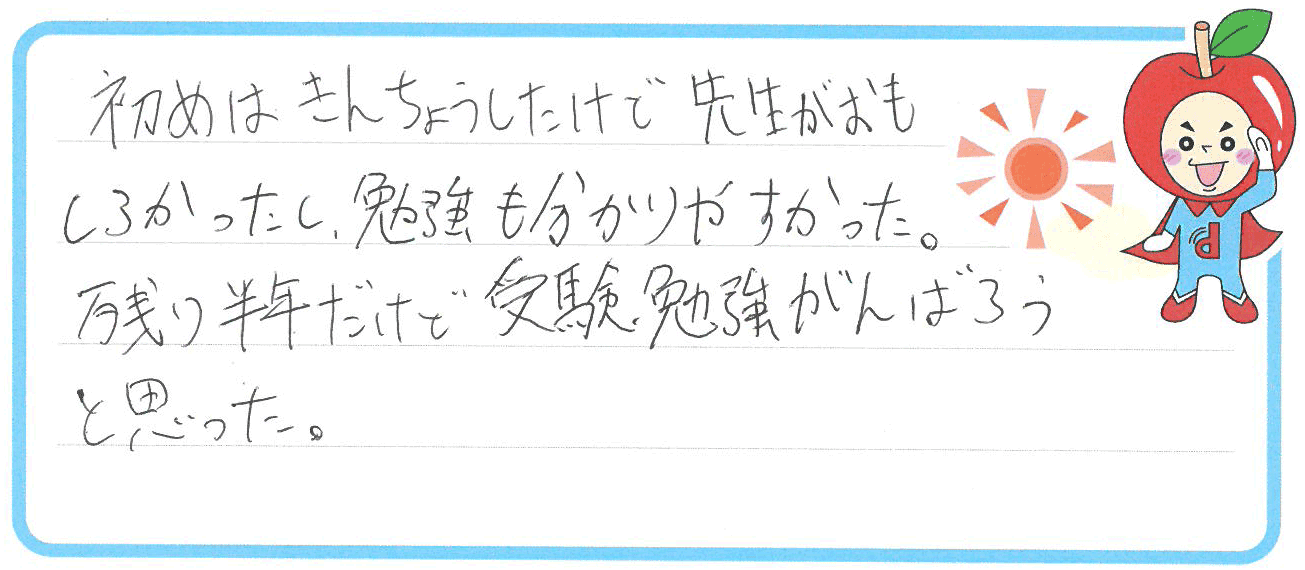 初めは きんちょうしたけど 先生がおも
しろかったし、勉強も分かりやすかった。
残り半年だけど受験勉強がんばろう
と思った。